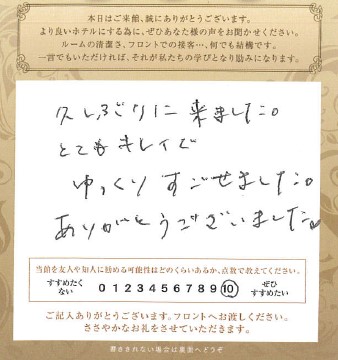 本日はご来館、誠にありがとうございます。
より良いホテルにする為に、ぜひあなた様の声をお聞かせください。
ルームの清潔さ、フロントでの接客…、何でも結構です。
一言でもいただければ、それが私たちの学びとなり励みになります。
久しぶりに来ました。
とてもキレイで
ゆっくりすごせました。
ありがとうございました。
当館を友人や知人に勧める可能性はどのくらいあるか、点数で教えてください。
すすめたくない 0 1 2 3 4 5 6 7 8 9 10 ぜひすすめたい
ご記入ありがとうございます。フロントへお渡しください。
ささやかなお礼をさせていただきます。
書ききれない場合は裏面へどうぞ